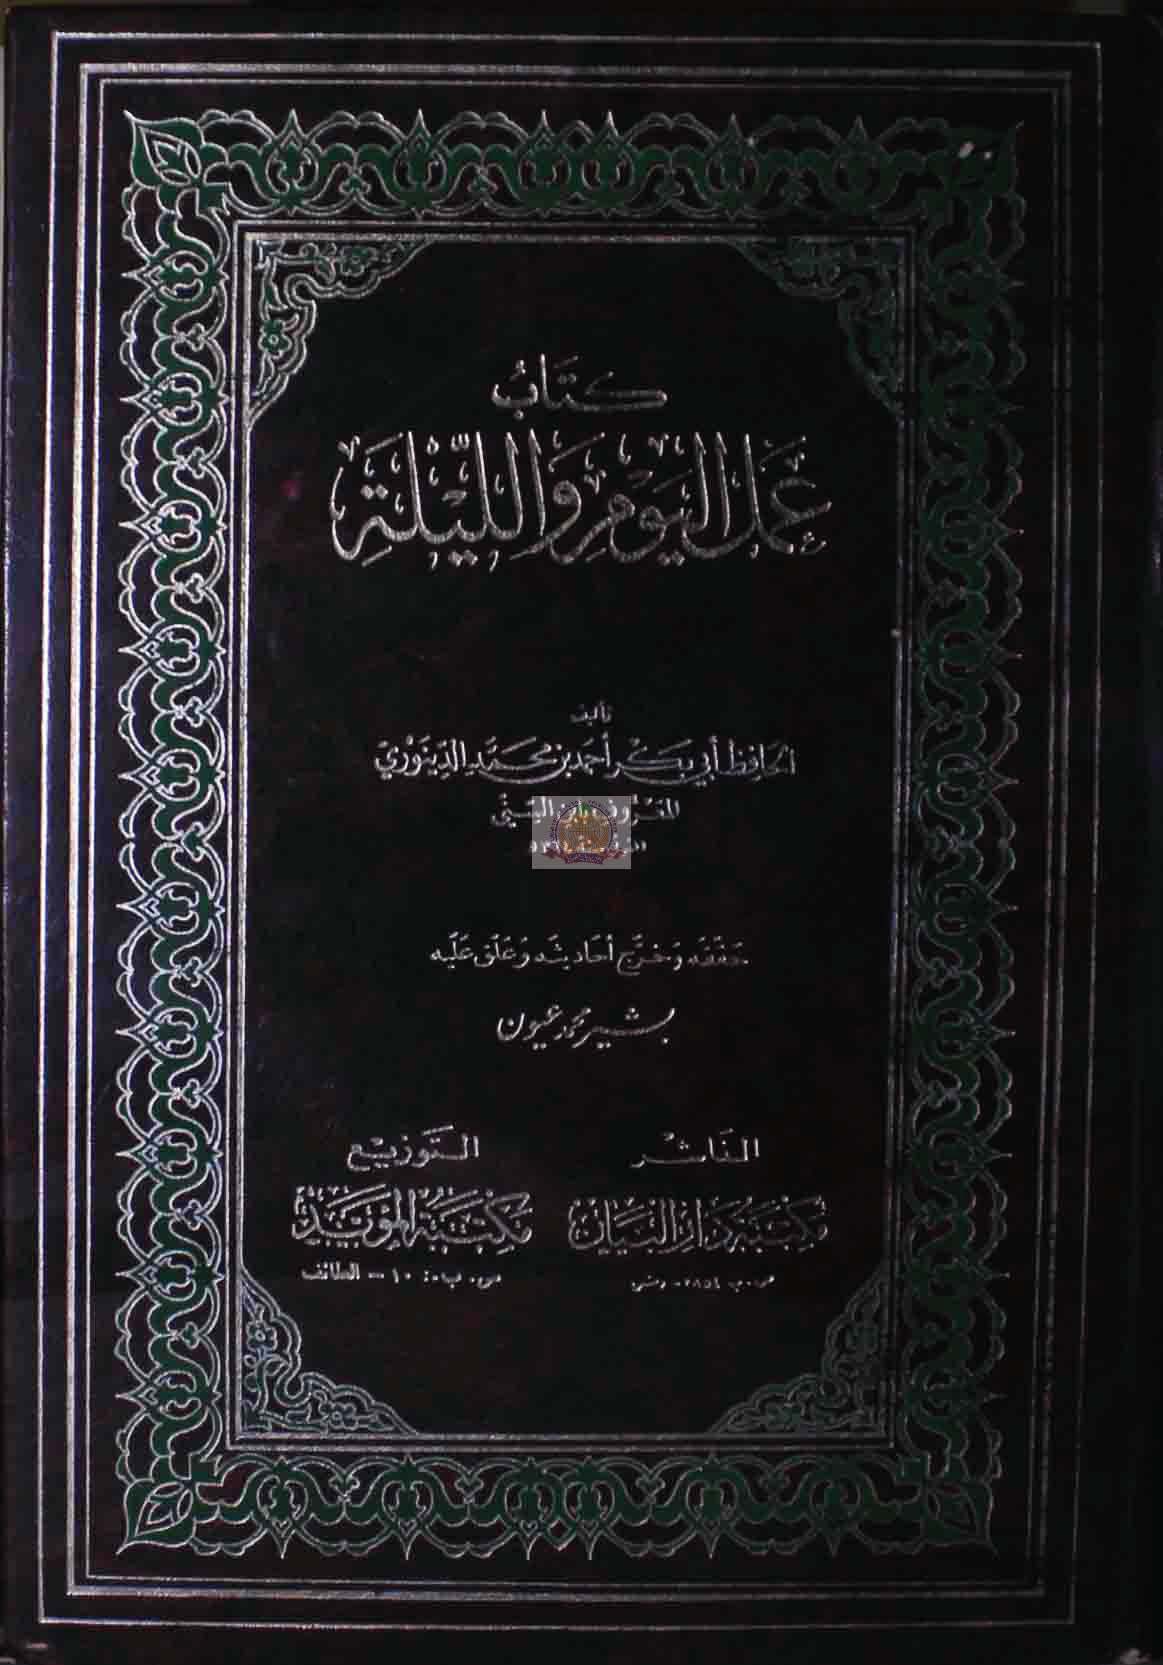 كتاب
عمل اليوم والليلة
تأليف
الحافظ أبي بكر أحمد بن محمد الدينوري
المعروف بابن السني
حققه وخرج أحاديثه وعلق عليه
بشير محمد عيون
الناشر
مكتبة دار البيان
ص.ب ٢٨٥٤
التوزيع
مكتبة المؤيد
ص.ب: ١٠ - الطائف